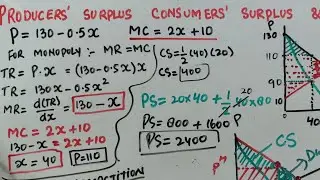 PRODUCERS' SURPLUS CONSUMERS' SURPLUS &
P = 130 - 0.5x
MC = 2x + 10
FOR MONOPOLY :- MR = MC
TR = P.x = (130-0.5x)x
TR = 130x - 0.5x²
MR = d(TR)/dx = 130 - x
MC = 2x + 10
130 - x = 2x + 10
x = 40 P = 110
CS = 1/2 (40)(20)
CS = 400
PS = 20x40 + 1/2 40x80
20
PS = 800 + 1600
PS = 2400
P
130
110
90
CS